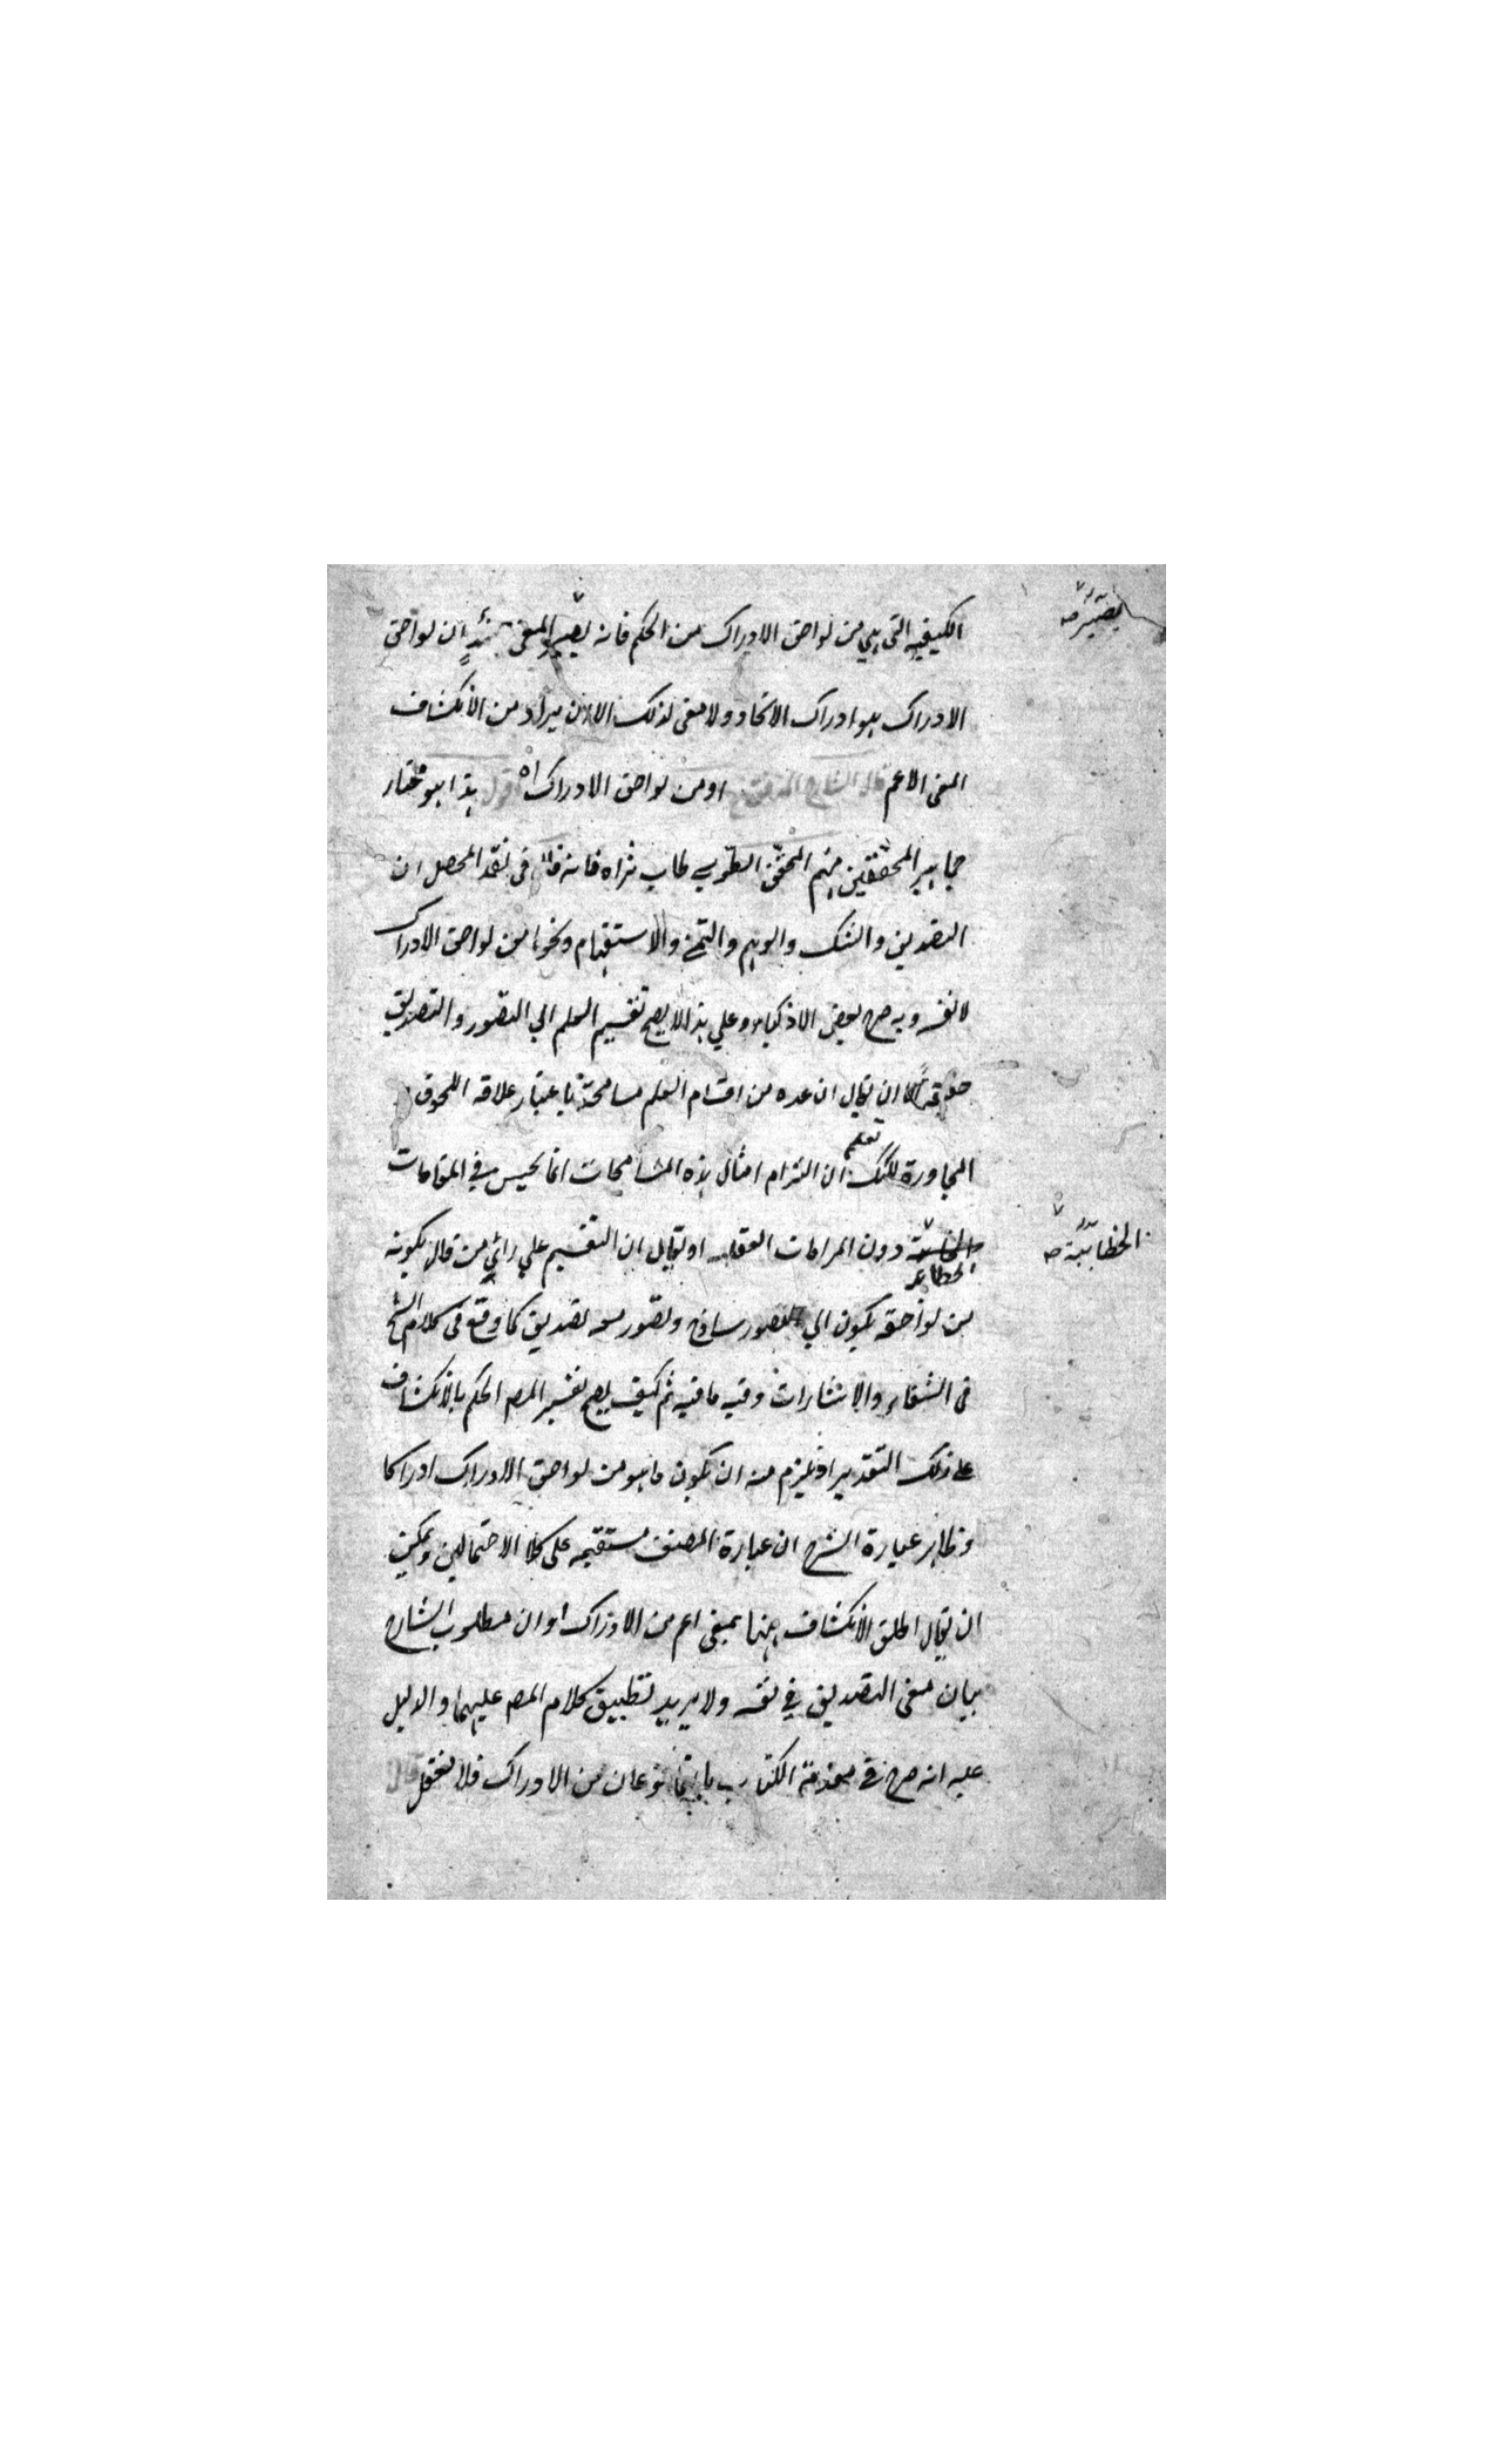 الكيفية التى هي من لواحق الادراك من الحكم فانه يصير المعنى حينئذٍ ان لواحق
الادراك هو ادراك الاتحاد ولا معنى لذلك الا ان يراد من الانكشاف
المعنى الاعم قال الشارح المحقق او من لواحق الادراك اه اقول هذا هو مختار
جماهير المحققين منهم المحقق الطوسي طاب ثراه فانه قال في نقد المحصل ان
التصديق والشك والوهم والتمنى والاستفهام ونحوها من لواحق الادراك
لا نفسه وبه صرح بعض الاذكياء وعلي هذا لا يصح تقسيم العلم الي التصور والتصديق
حقيقة الا ان يقال ان عده من اقسام العلم مسامحة باعتبار علاقة اللحوق
المجاورة لكنك تعلم ان التزام امثال هذه المسامحات انما يحسن في المقامات
الخطابية دون المرامات العقلية او يقال ان التقسيم علي رائي من قال بكونه
من لواحقه يكون الي تصور ساذج وتصور معه تصديق كما وقع في كلام الشيخ
في الشفاء والاشارات وفيه ما فيه ثم كيف يصح تفسير المصـ الحكم بالانكشاف
على ذلك التقدير اذ يلزم منه ان يكون ما هو من لواحق الادراك ادراكا
وظاهر عبارة الشرح ان عبارة المصنف مستقيمة على كلا الاحتمالين ويمكن
ان يقال اطلق الانكشاف ههنا بمعنى اعم من الادراك او ان مطلوب الشارح
بيان معنى التصديق في نفسه ولا يريد تطبيق كلام المصـ عليهما والدليل
عليه انه صرح في مقدمة الكتاب بانهما نوعان من الادراك فلا تغفل قال
يصير صح
الخطابية صح